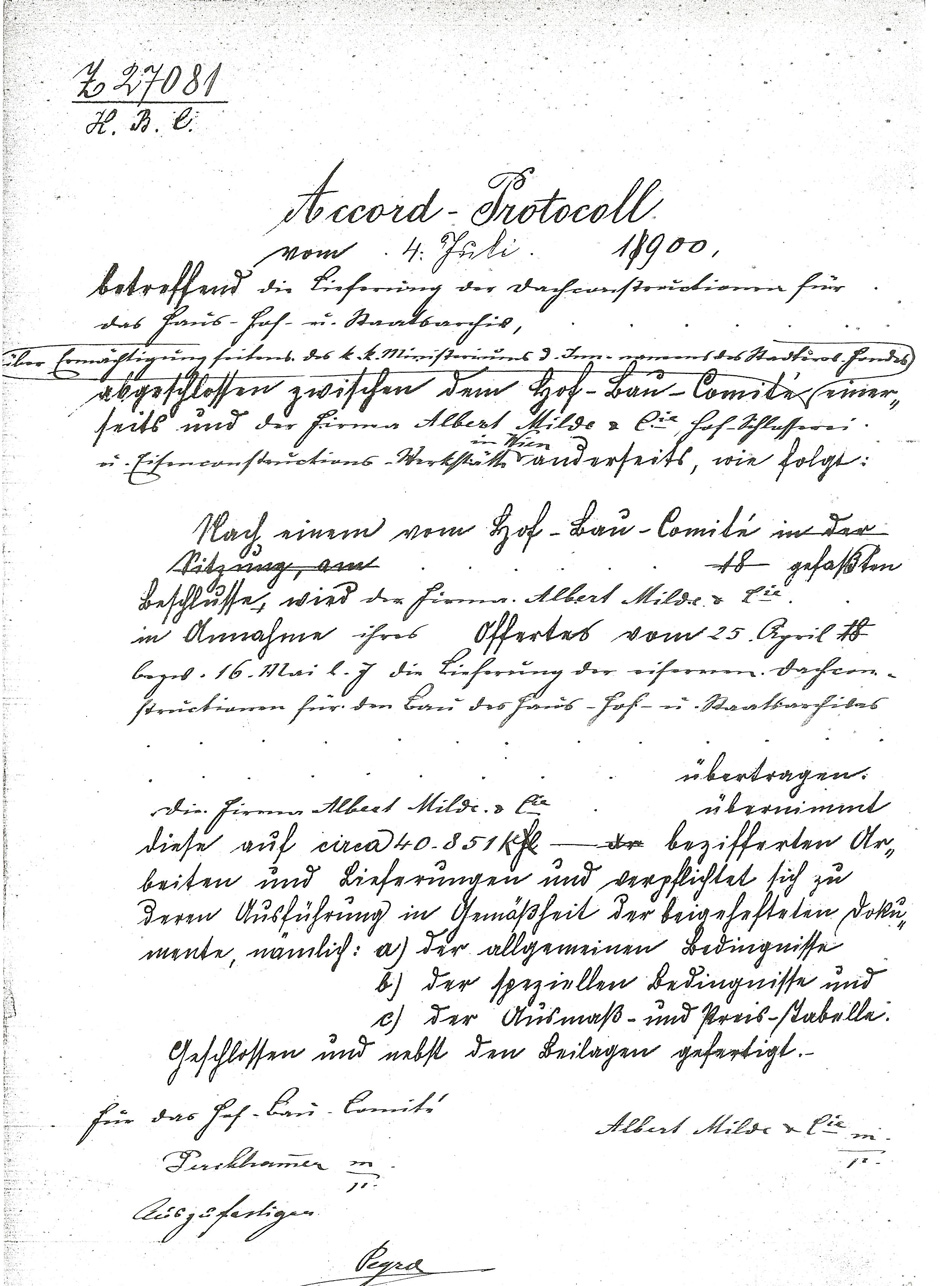 Z 27081
H. B. C.
Accord-Protocoll
vom 4. Juli 1900,
betreffend die Lieferung der Dachconstructionen für
das Haus- Hof- u. Staatsarchiv,
über Ermächtigung seitens des k. k. Ministeriums d. Inn. namens des Stadterw. Fondes
abgeschlossen zwischen dem Hof-Bau-Comité einer„
seits und der Firma Albert Milde & Cie Hof-Schlosserei
in Wien
u. Eisenconstructions-Werkstätte anderseits, wie folgt:
Nach einem vom Hof-Bau-Comité in der
Sitzung, am 18 gefaßten
Beschlusse, wird der Firma Albert Milde & Cie
in Annahme ihres Offertes vom 25. April 18
bezw. 16. Mai l. J die Lieferung der eisernen Dachcon-
structionen für den Bau des Haus- Hof- u. Staatsarchives
übertragen.
Die Firma Albert Milde & Cie übernimmt
diese auf circa 40.851 Kg — bezifferten Ar„
beiten und Lieferungen und verpflichtet sich zu
deren Ausführung in Gemäßheit der beigehefteten Doku„
mente, nämlich: a) der allgemeinen Bedingnisse
b) der speziellen Bedingnisse und
c) der Ausmaß- und Preis-Tabelle.
Geschlossen und nebst den Beilagen gefertigt.-
Für das Hof-Bau-Comité
Albert Milde & Cie m.
p.
m.
p.
Auszufertigen